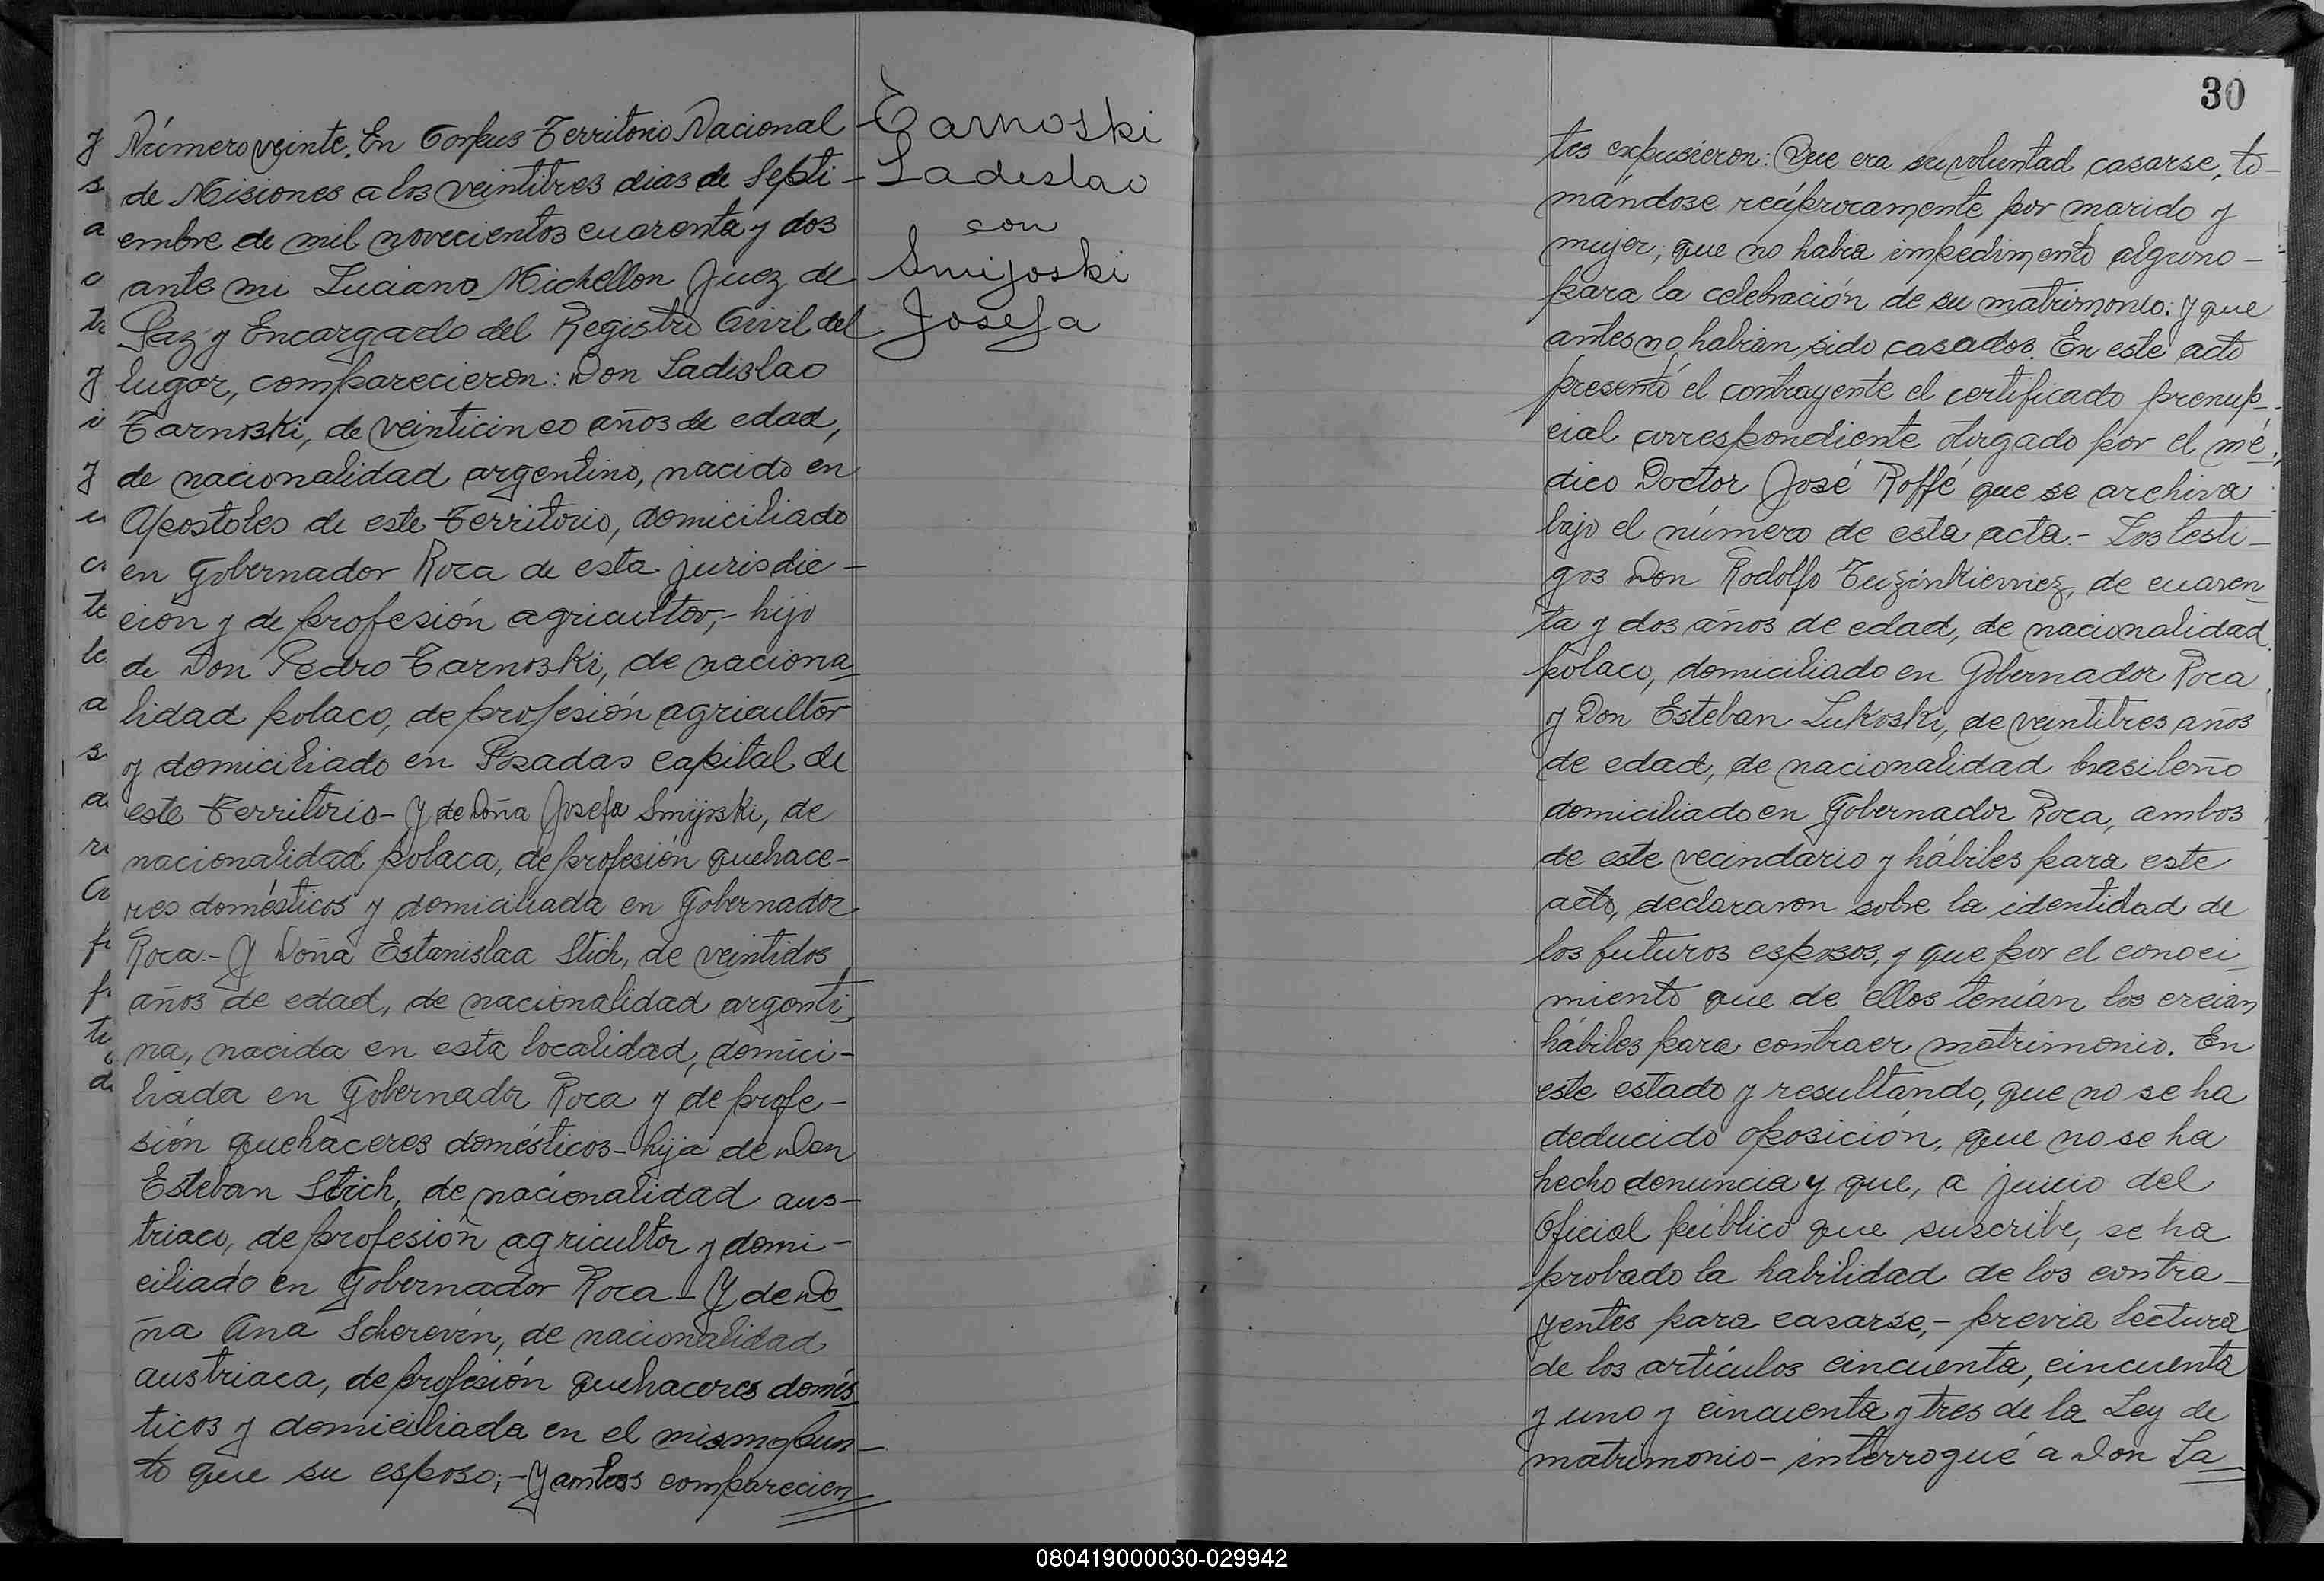 Número veinte. En Corpus Territorio Nacional
de Misiones a los veintitres dias de Septi-
embre de mil novecientos cuarenta y dos
ante mi Luciano Michellon Juez de
Paz y Encargado del Registro Civil del
lugar, comparecieron: Don Ladislao
Tarnoski, de veinticinco años de edad,
de nacionalidad argentino, nacido en
Apostoles de este Territorio, domiciliado
en Gobernador Roca de esta jurisdic-
ción y de profesión agricultor,- hijo
de Don Pedro Tarnoski, de naciona
lidad polaco, de profesión agricultor
y domiciliado en Posadas capital de
este Territorio- Y de Doña Josefa Smijoski, de
nacionalidad polaca, de profesión quehace-
res domésticos y domiciliada en Gobernador
Roca.- Y Doña Estanislaa Stich, de veintidos
años de edad, de nacionalidad argenti
na, nacida en esta localidad, domici-
liada en Gobernador Roca y de profe-
sión quehaceres domésticos- hija de Don
Esteban Stich, de nacionalidad aus-
triaco, de profesión agricultor y domi-
ciliado en Gobernador Roca- Y de Do
ña Ana Scherevin, de nacionalidad
austriaca, de profesión quehaceres domés
ticos y domiciliada en el mismo pun-
to que su esposo;- Y ambos comparecien
Tarnoski
Ladislao
con
Smijoski
Josefa
30
tes expusieron: Que era su voluntad casarse, to-
mándose recíprocamente por marido y
mujer; que no habia impedimento alguno-
para la celebración de su matrimonio: y que
antes no habian sido casados. En este acto
presentó el contrayente el certificado prenup-
cial correspondiente otorgado por el mé
dico Doctor José Roffé que se archiva
bajo el número de esta acta.- Los testi-
gos Don Rodolfo Tuzinkievviez, de cuaren
ta y dos años de edad, de nacionalidad
polaco, domiciliado en Gobernador Roca
y Don Esteban Lukoski, de veintitres años
de edad, de nacionalidad brasileño
domiciliado en Gobernador Roca, ambos
de este vecindario y hábiles para este
acto, declararon sobre la identidad de
los futuros esposos, y que por el conoci
miento que de ellos tenían los creian
hábiles para contraer matrimonio. En
este estado y resultando, que no se ha
deducido oposición, que no se ha
hecho denuncia y que, a juicio del
Oficial público que suscribe, se ha
probado la habilidad de los contra-
yentes para casarse,- previa lectura
de los artículos cincuenta, cincuenta
y uno y cincuenta y tres de la Ley de
matrimonio- interrogué a Don La
080419000030-029942